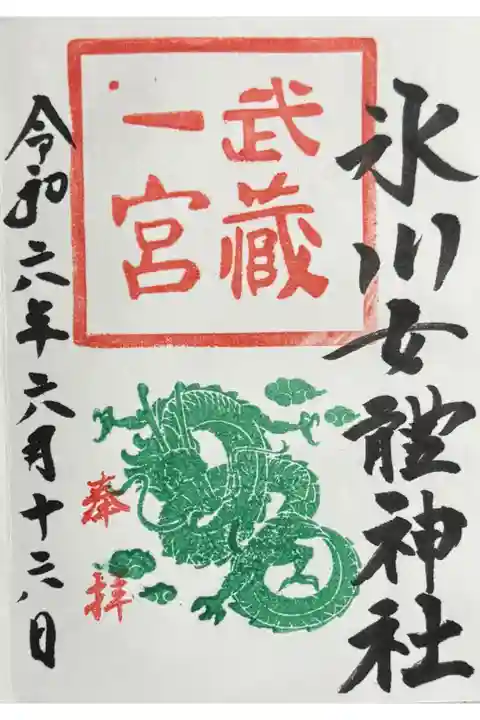 氷川女體神社
武蔵
一宮
奉拝
令和六年六月十六日